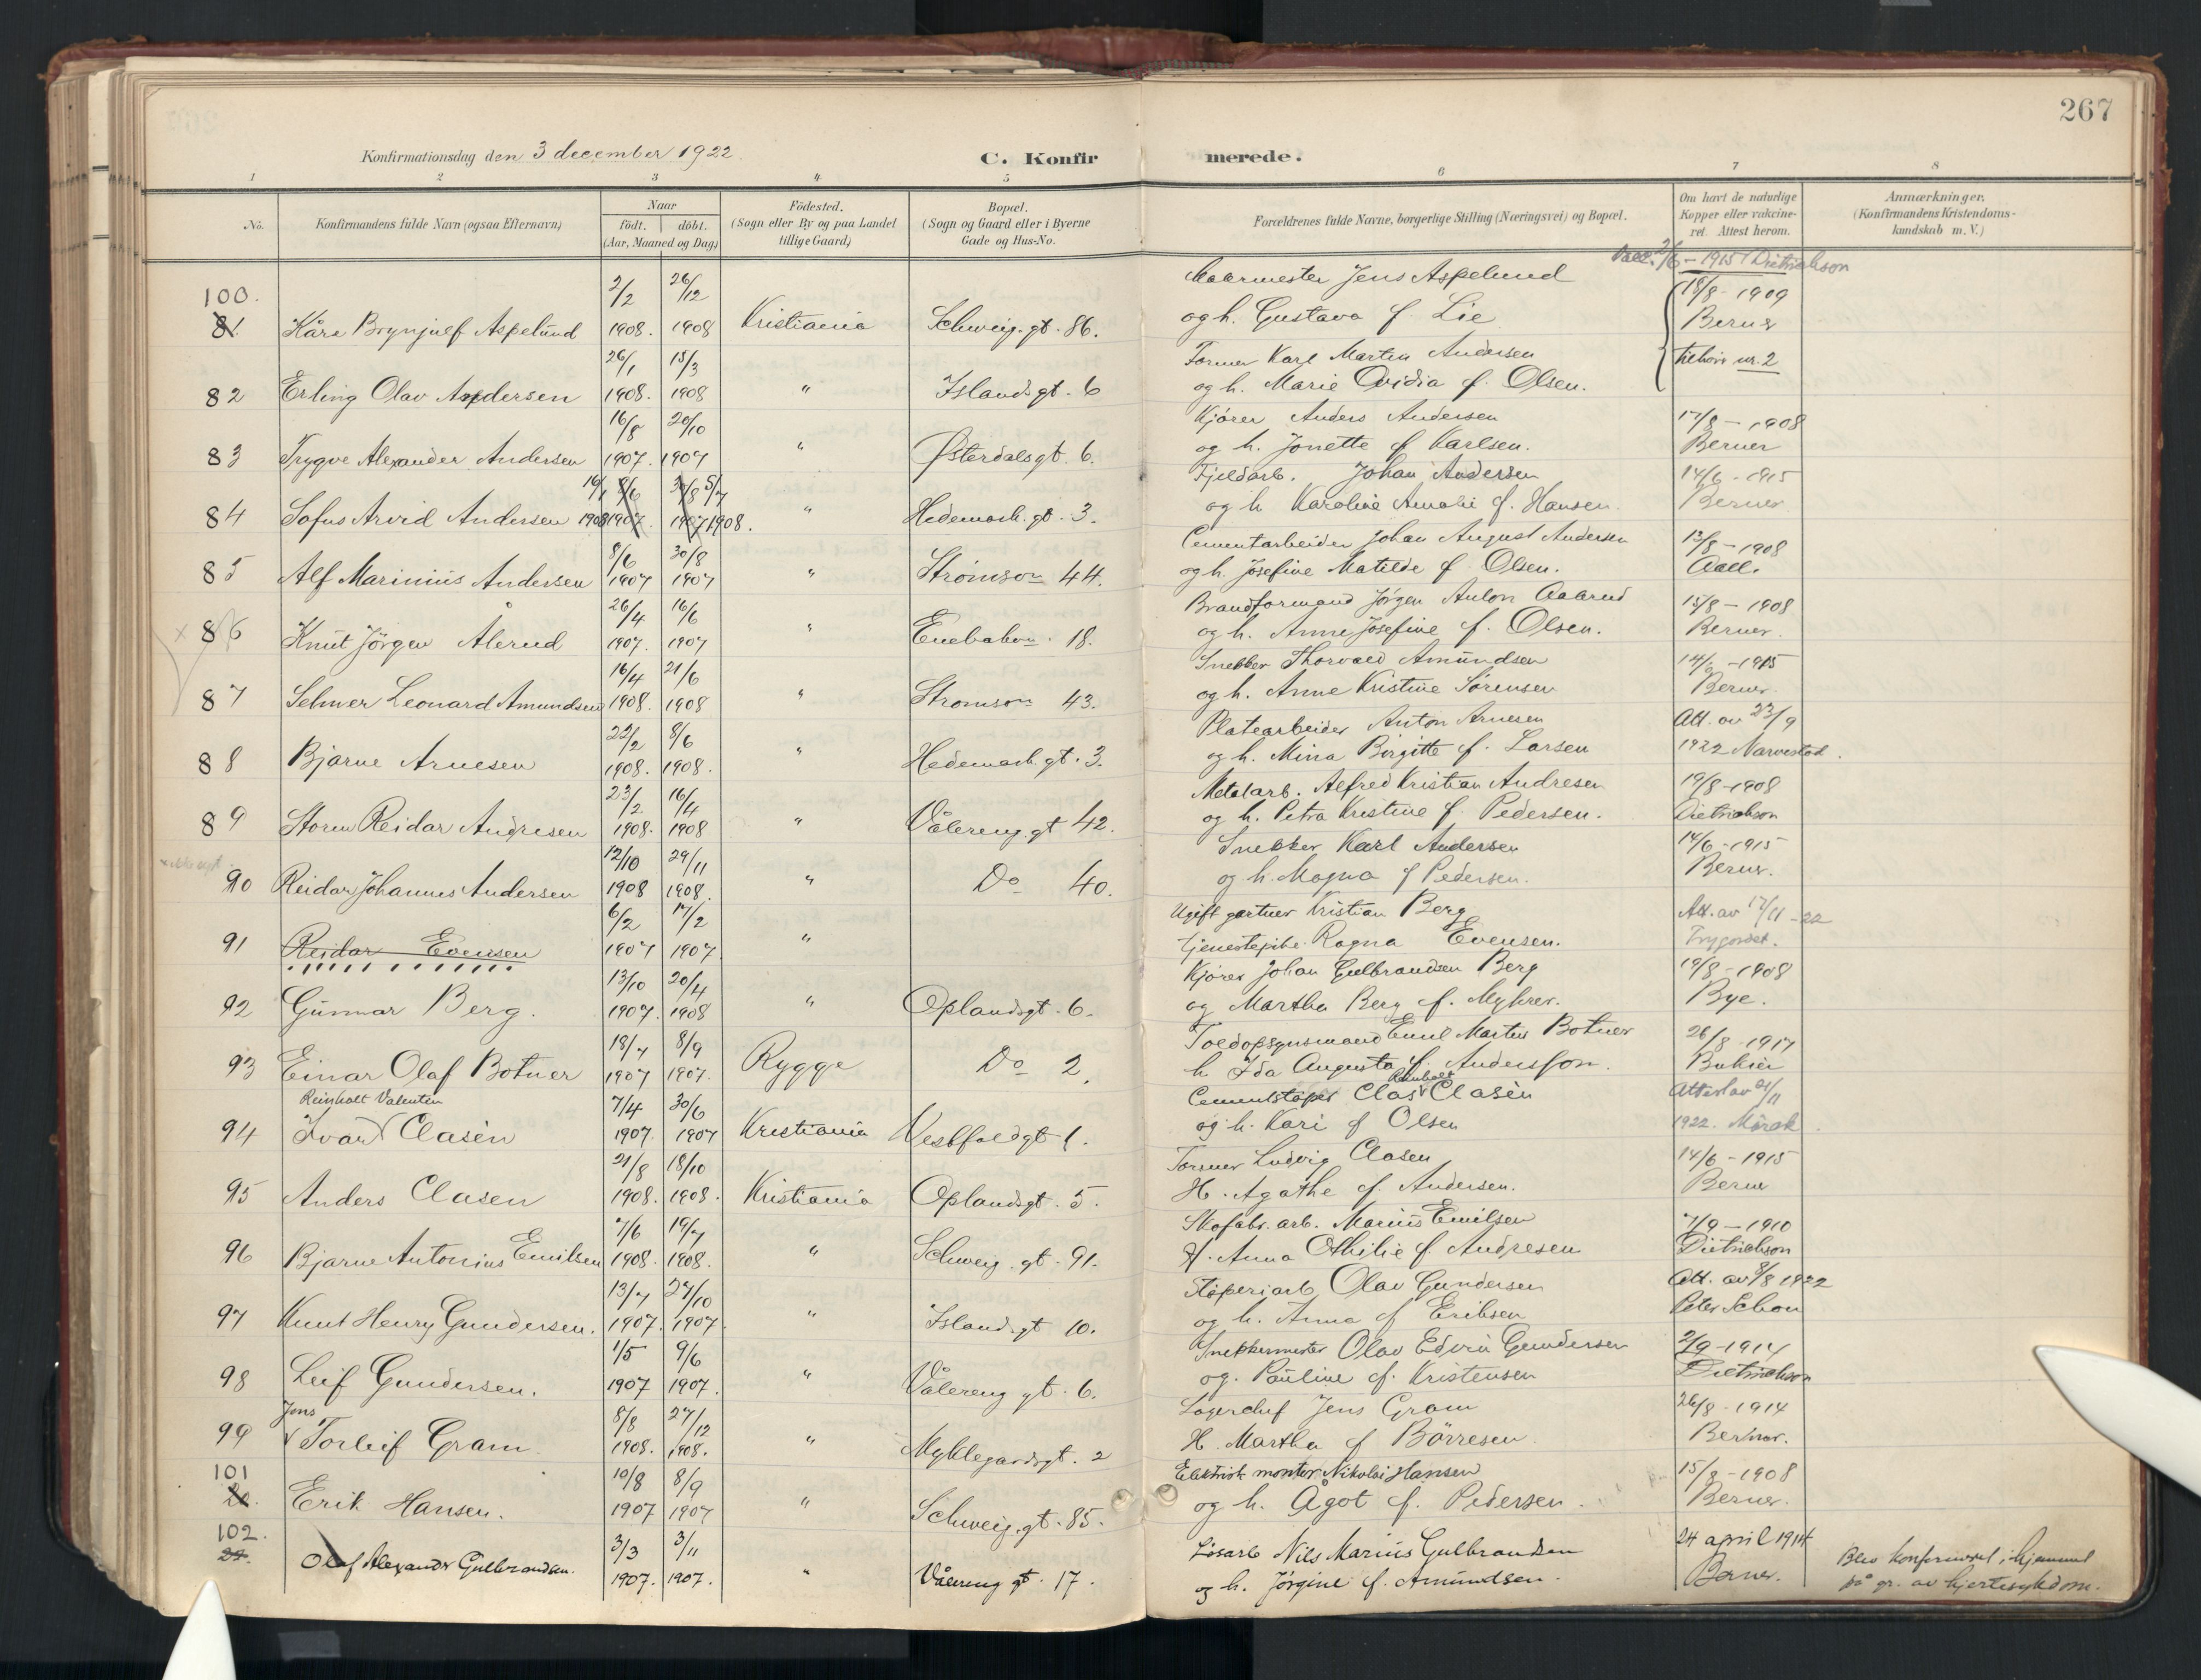 267
Konfirmationsdag den 3 december 1922.
C. Konfirmerede.
1 2 3 4 5 6 7 8
No. Konfirmandens fulde Navn (ogsaa Efternavn) Naar födt. döbt. (Aar, Maaned og Dag) Födested. (Sogn eller By og paa Landet tillige Gaard) Bopæl. (Sogn og Gaard eller i Byerne Gade og Hus-No. Forældrenes fulde Navne, borgerlige Stilling (Næringsvei) og Bopæl. Om havt de naturlige Kopper eller vakcineret. Attest herom. Anmærkninger. (Konfirmandens Kristendomskundskab m. V.)
Aall. 2/6 - 1915 Dietrichson
100. 2/2 26/12 Jens Aspelund 18/8 - 1909
81. Kåre Brynjulf Aspelund 1908. 1908 Kristiania Schweig. gt. 86. og h. Gustava f. Lie Berner
26/1 15/3 Former Karl Martin Andersen tilhörer nr. 2
82 Erling Olav Andersen 1908. 1908 " Islands gt. 6 og h. Marie Ovidia f. Olsen.
16/8 20/10 Kjører Anders Andersen 17/8 - 1908
83 Trygve Alexander Andersen 1907. 1907 " Østerdalsgt. 6. og h. Jonette f Karlsen. Berner
16/1 8/6 30/8 5/7 Fjeldarb. Johan Andersen 14/6 - 1915
84 Sofus Arvid Andersen 1908 1907. 1907 1908. " Hedemark. gt. 3. og h. Karoline Amalie f. Hansen. Berner
8/6 30/8 Cementarbeider Johan August Andersen 13/8 - 1908
85 Alf Marinius Andersen 1907 1907 " Strömsvn 44. og h. Josefine Matilde f Olsen. Aall.
26/4 16/6 Brandformand Jörgen Anton Aalerud 15/8 - 1908
86 Knut Jörgen Ålerud 1907. 1907 " Enebakvn. 18. og h. Anne Josefine f. Olsen. Berner.
16/4 21/6 Snekker Thorvald Amundsen 14/6 - 1915
87 Selmer Leonard Amundsen 1908. 1908 " Stromsvn 43. og h. Anne Kristine Sörensen Berner.
22/2 8/6 Platearbeider Anton Arnesen Att. av 23/9
88 Bjarne Arnesen 1908. 1908. " Hedemark. gt. 3. og h. Mina Birgitte f. Larsen 1922 Narvestad.
23/2 16/4 Metalarb. Alfred Kristian Andresen 19/8 - 1908
89 Storm Reidar Andresen 1908. 1908 " Vålereng. gt 42. og h. Petra Kristine f. Pedersen. Dietrichson
12/10 29/11 Snekker Karl Andersen 14/6 - 1915
90 Reidar Johannes Andersen 1908 1908. " Do 40. og h. Magna f Pedersen. Berner.
6/2 17/2 Ugift gartner Kristian Berg Att. av 17/11 - 22
91 Reidar Evensen 1907 1907 " tjenestepike Ragna Evensen.
13/10 20/4 Kjörer Johan Gulbrandsen Berg 19/8 - 1908
92 Gunnar Berg. 1907. 1908 " Oplandsgt. 6. og Martha Berg f. Myhrer. Bye.
18/7 8/9 Toldopsynsmand Emil Martin Botner 26/8 - 1917
93 Einar Olaf Botner 1907 1907. Rygge Do 2. h Ida Augusta f. Andersson.
Reinholt Valentin 7/4 30/6 Cementstøper Clas Reinholt Clasèn Attest av 21/11
94 Ivar Clasèn 1907. 1907 Kristiania Vestfoldgt 1. og h. Kari f Olsen 1922.
21/8 18/10 Former Ludvig Clasen 14/6 - 1915
95 Anders Clasen 1908. 1908. Kristiania Oplandsgt. 5. H. Agathe f. Andersen. Berner
7/6 19/7 Skofabr. arb. Marius Emilsen 7/9 - 1910
96 Bjarne Antonius Emilsen 1908. 1908. " Schweig. gt. 91. H. Anna Othilie f. Andresen Dietrichson
13/7 27/10 Støperiarb Olav Gundersen Att. av 8/8 1922
97 Knut Henry Gundersen. 1907. 1907. " Island. gt 10. og h. Anna f Eriksen Peter Schou
1/5 9/6 Snekkermester Olav Edvin Gundersen 2/9 - 1914
98 Leif Gundersen. 1907 1907. " Vålereng gt. 6. og. Pauline f. Kristensen Dietrichson
Jens 8/8 27/12 Lagerchef Jens Gram 26/8 - 1914
99 Torleif Gram 1908. 1908. " Myklegardsgt. 2 H. Martha f Börresen. Berner.
101 10/8 8/9 Elektrisk montör Nikolai Hansen 15/8 - 1908
Erik Hansen. 1907 1907 " Schweig. gt. 85. og h. Ågot f. Pedersen. Berner.
102. 3/3 3/11 Løsarb Nils Marius Gulbrandsen 24 april 1914 Blev konfirmert i hjemmet
Olaf Alexander Gulbrandsen. 1907. 1907. " Vålereng gt. 17. og h. Jörgine f. Amundsen. Berner. på gr. av hjertesykdom.